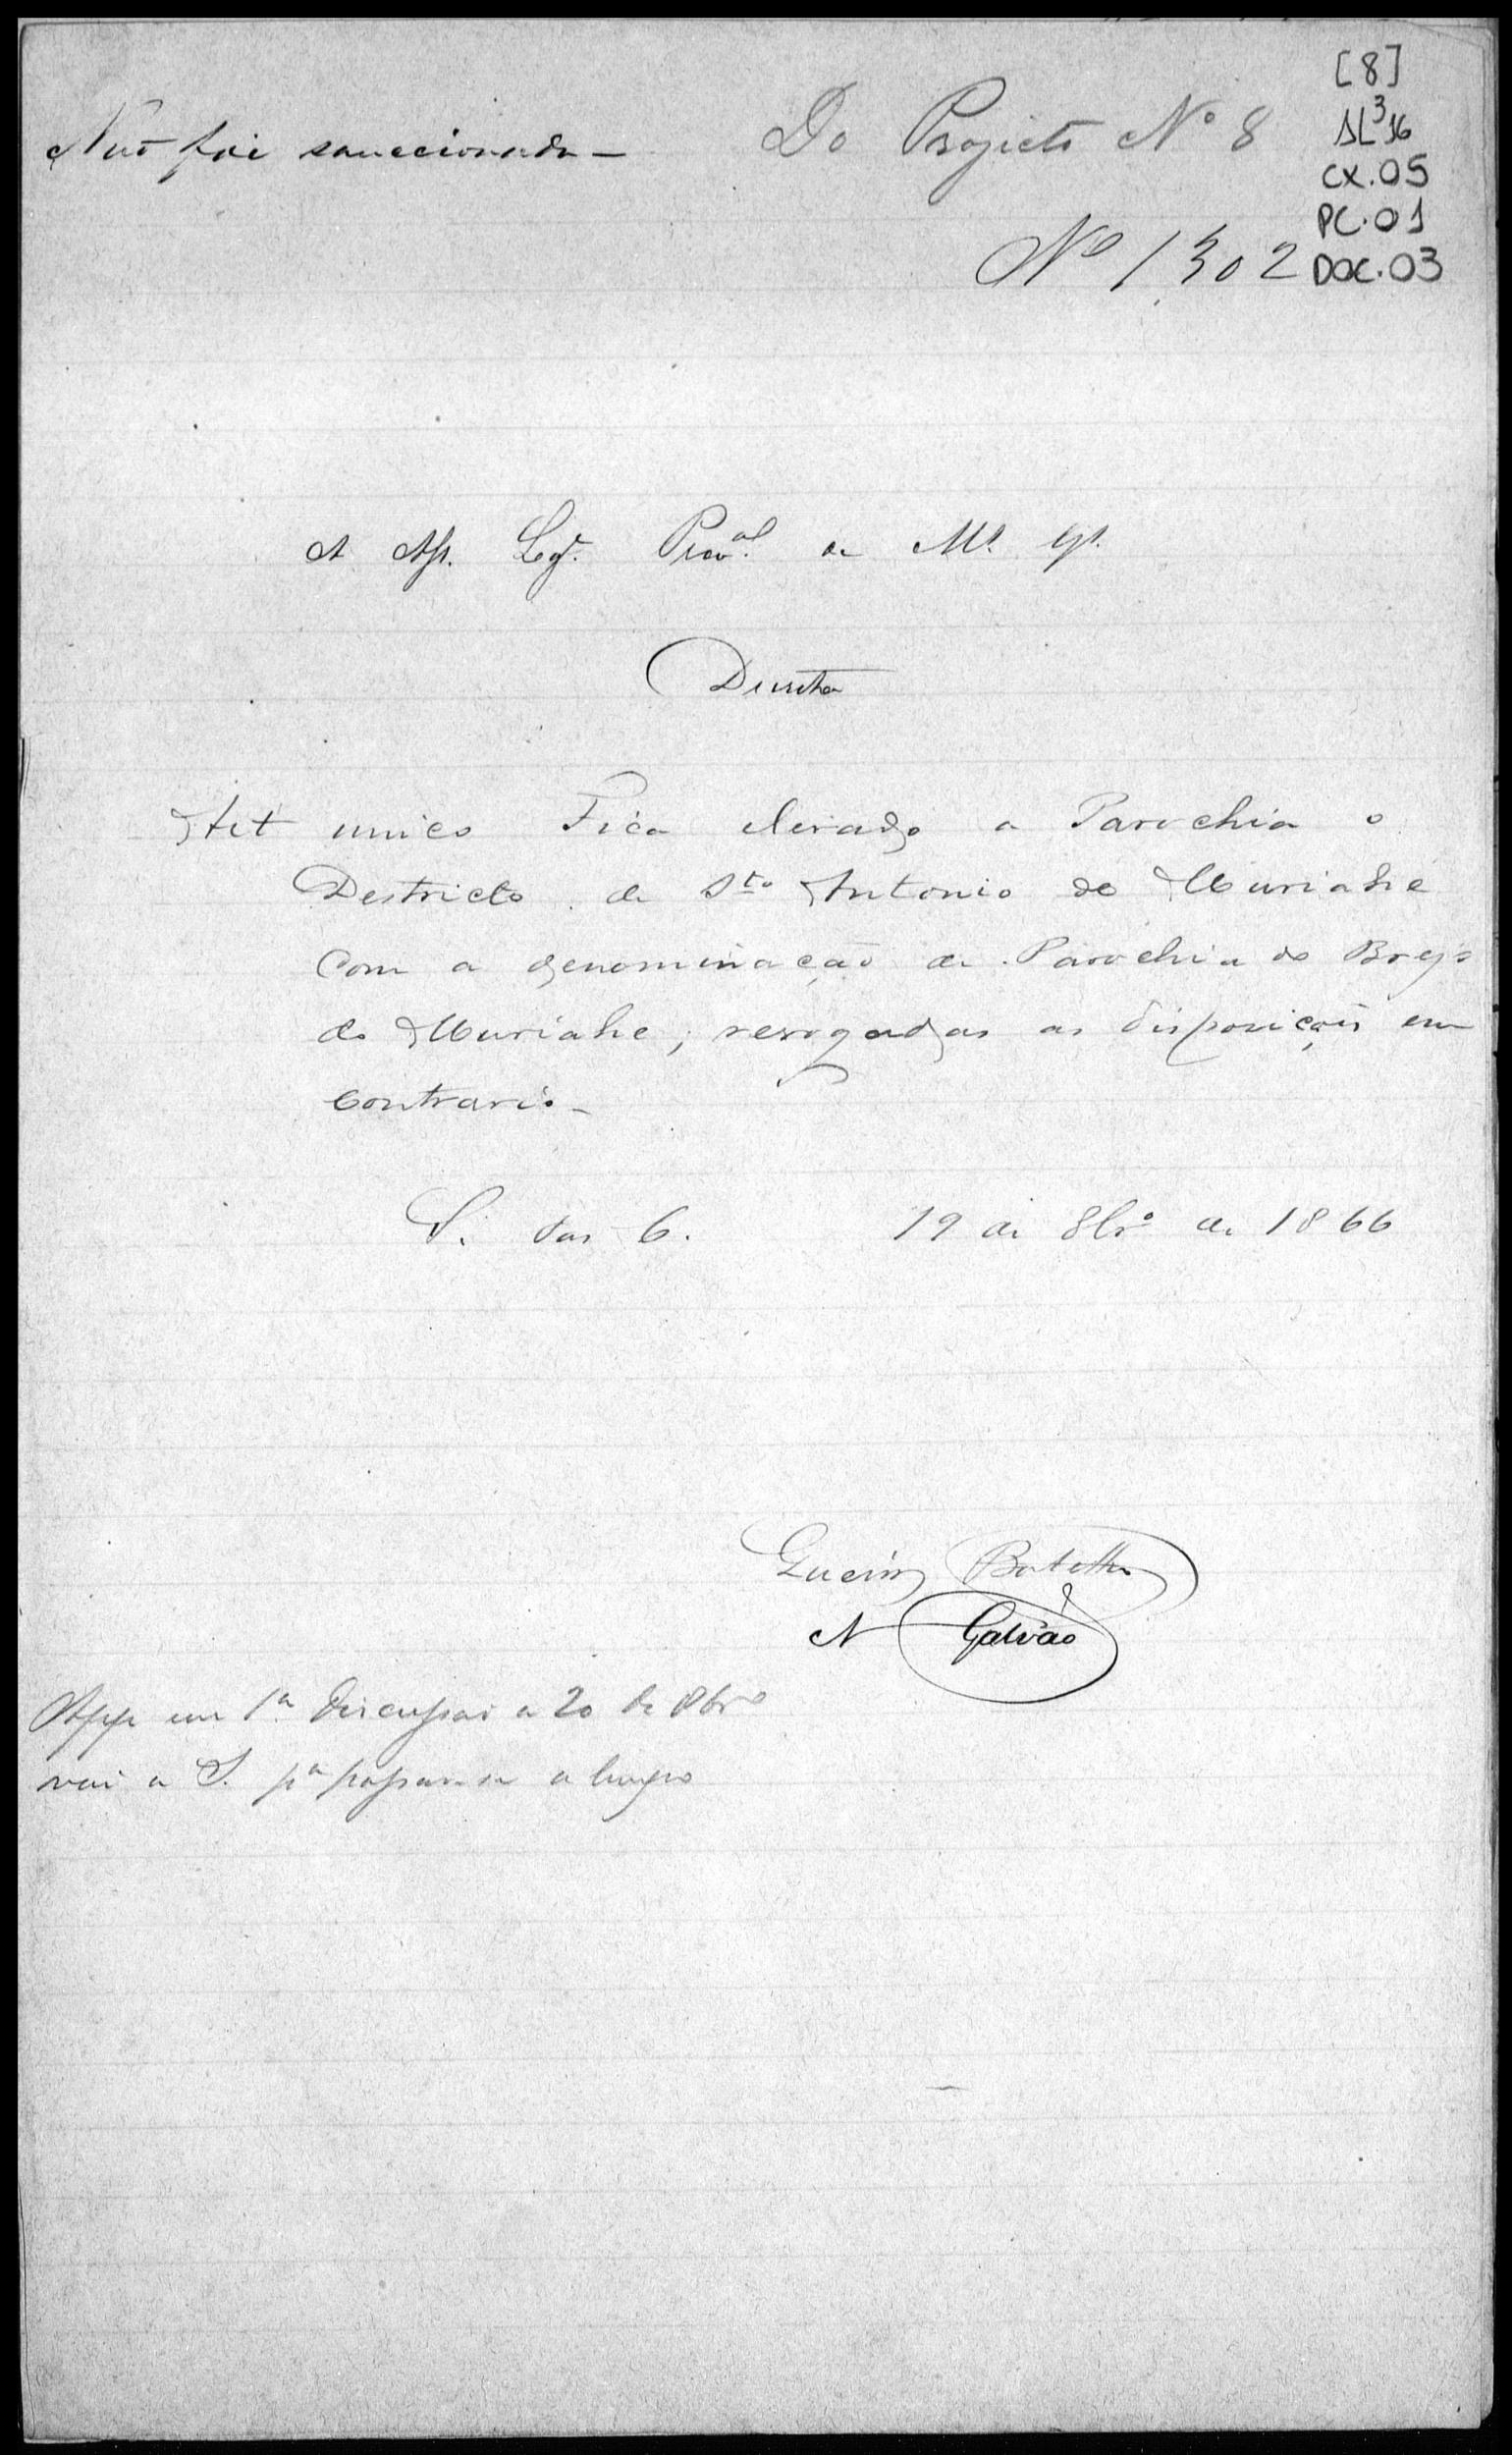 [8]
Não foi sanccionado –
Do Projecto Nº 8
SL³ 16
CX.05
PC.01
Nº 1302
DOC.03
A Ass. Leg. Prov.al de Ms. Gs.
Decreta
Art unico Fica elevado a Parochia o
Destricto de Sto Antonio do Muriahe
com a denominação de Parochia do Brejo
do Muriahe, revogadas as disposições em
contrario –
S. das C. 19 de 8bro de 1866
Botelho
A Galvão
App em 1ª discussão a 20 de 8bro
vai a S. pª passar a